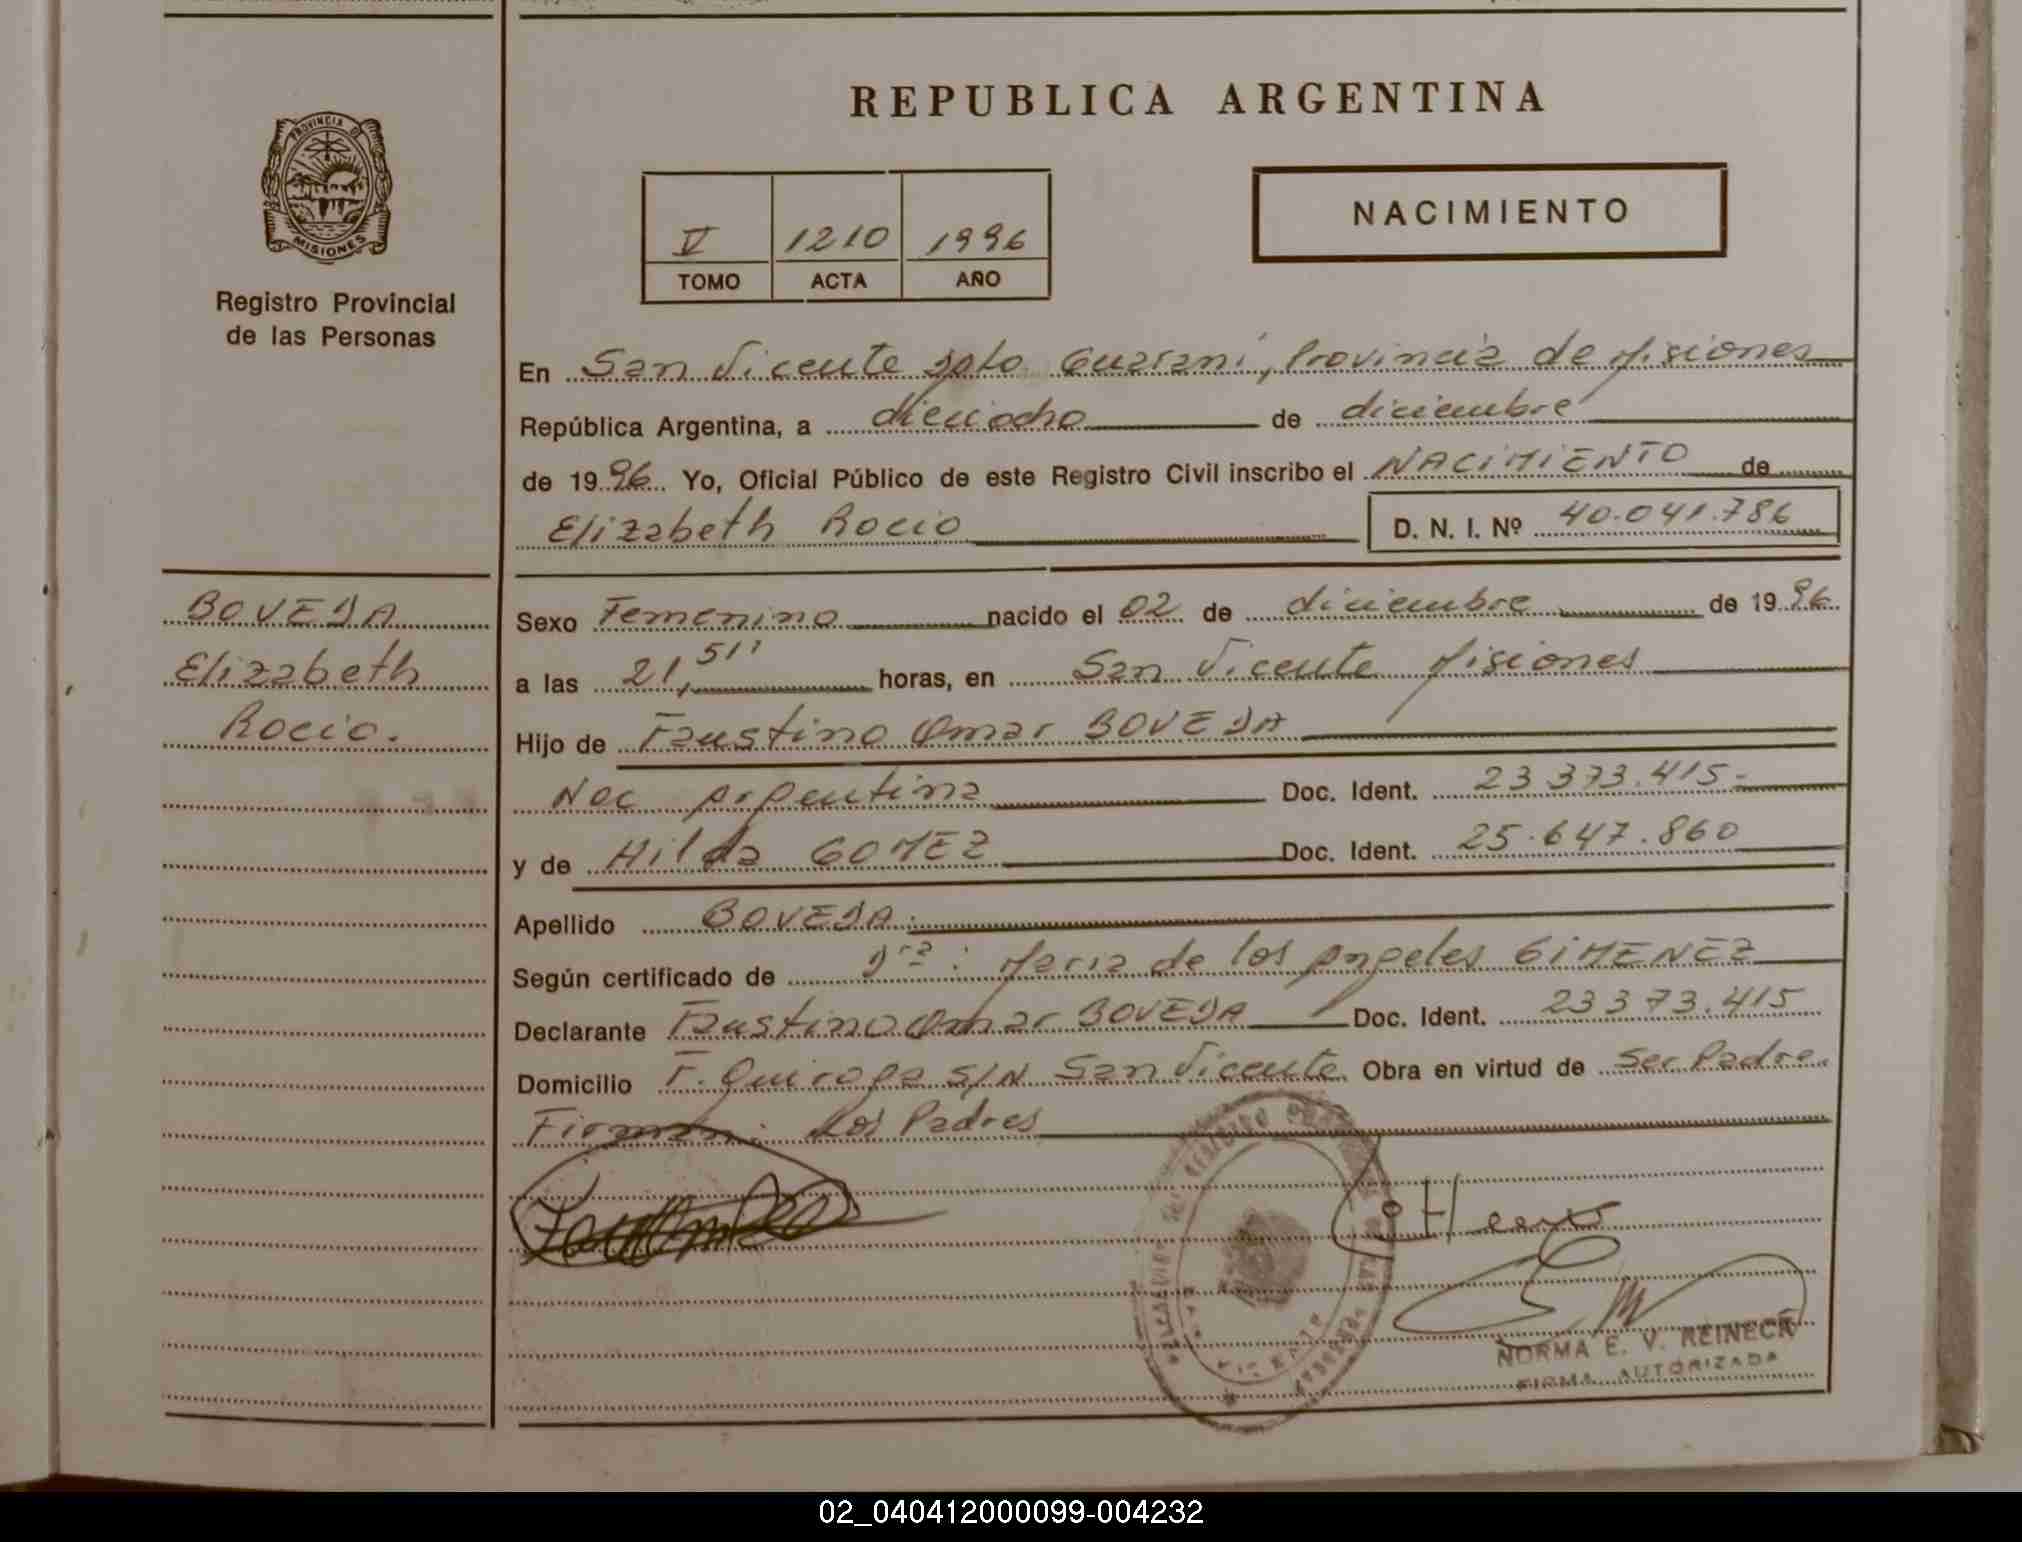 REPUBLICA ARGENTINA
PROVINCIA D
MISIONES
Registro Provincial
de las Personas
V 1210 1996
TOMO ACTA AÑO
NACIMIENTO
En San Vicente Dpto Guaraní, Provincia de Misiones
República Argentina, a dieciocho de diciembre
de 1996 Yo, Oficial Público de este Registro Civil inscribo el NACIMIENTO de
Elizabeth Rocio D. N. I. Nº 40.041.786
BOVEDA
Elizabeth
Rocio.
Sexo Femenino nacido el 02 de diciembre de 1996
a las 21,51' horas, en San Vicente Misiones
Hijo de Faustino Omar BOVEDA
Nac Argentina Doc. Ident. 23 373.415-
y de Hilda GOMEZ Doc. Ident. 25.647.860
Apellido BOVEDA.
Según certificado de Dra: Maria de los Angeles GIMENEZ
Declarante Faustino Omar BOVEDA Doc. Ident. 23373.415
Domicilio F. Quiroga S/N San Vicente Obra en virtud de Ser Padre.
Firman: Los Padres
NORMA E. V. REINECK
FIRMA AUTORIZADA
02_040412000099-004232